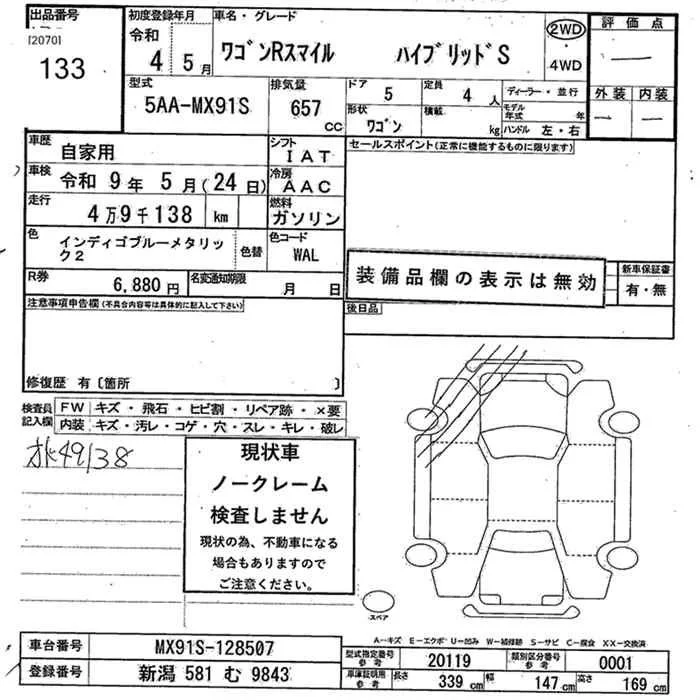 出品番号
[2070]
133
初度登録年月
令和
4年 5月
車名・グレード
ワゴンRスマイル ハイブリッドS
2WD
・
4WD
評価点
—
外装 内装
— —
型式
5AA-MX91S
排気量
657
CC
ドア
5
定員
4人
形状
ワゴン
積載
kg
ディーラー・並行
モデル
年式 年
ハンドル 左・右
車歴
自家用
シフト
IAT
車検
令和 9年 5月(24日)
冷房
AAC
走行
4万9千138 km
燃料
ガソリン
色
インディゴブルーメタリッ
ク2
色替
色コード
WAL
R券
6,880円
名変通知期限
月 日
セールスポイント(正常に機能するものに限ります)
装備品欄の表示は無効
新車保証書
有・無
後日品
注意事項申告欄(不具合内容等は具体的に記入して下さい)
修復歴 有〔箇所 〕
検査員
記入欄
FW キズ・飛石・ヒビ割・リペア跡・×要
内装 キズ・汚レ・コゲ・穴・スレ・キレ・破レ
49138
現状車
ノークレーム
検査しません
現状の為、不動車になる
場合もありますので
ご注意ください。
スペア
A—キズ E—エクボ U—凹み W—補修跡 S—サビ C—腐食 XX—交換済
車台番号
MX91S-128507
登録番号
新潟 581 む 9843
型式指定番号
参考
20119
類別区分番号
参考
0001
車庫証明用
参考
長さ
339 cm
幅
147 cm
高さ
169 cm